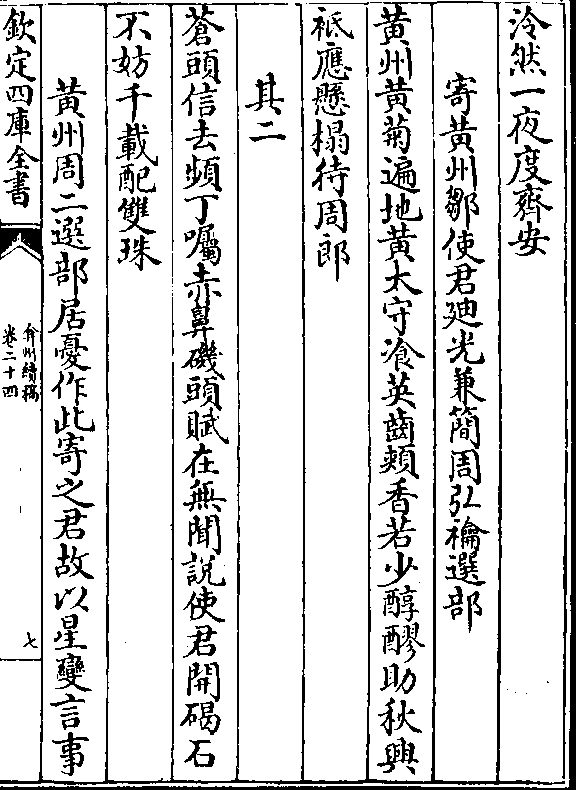 泠然一夜度齊安
寄黃州鄒使君廸光兼簡周弘禴選部
黃州黃菊遍地黃太守飡英齒頰香若少醇醪助秋興
祗應懸榻待周郎
其二
蒼頭信去頻丁囑赤鼻磯頭賦在無聞説使君開碣石
不妨千載配雙珠
黃州周二選部居憂作此寄之君故以星變言事
欽定四庫全書
弇州續稿
卷二十四
七